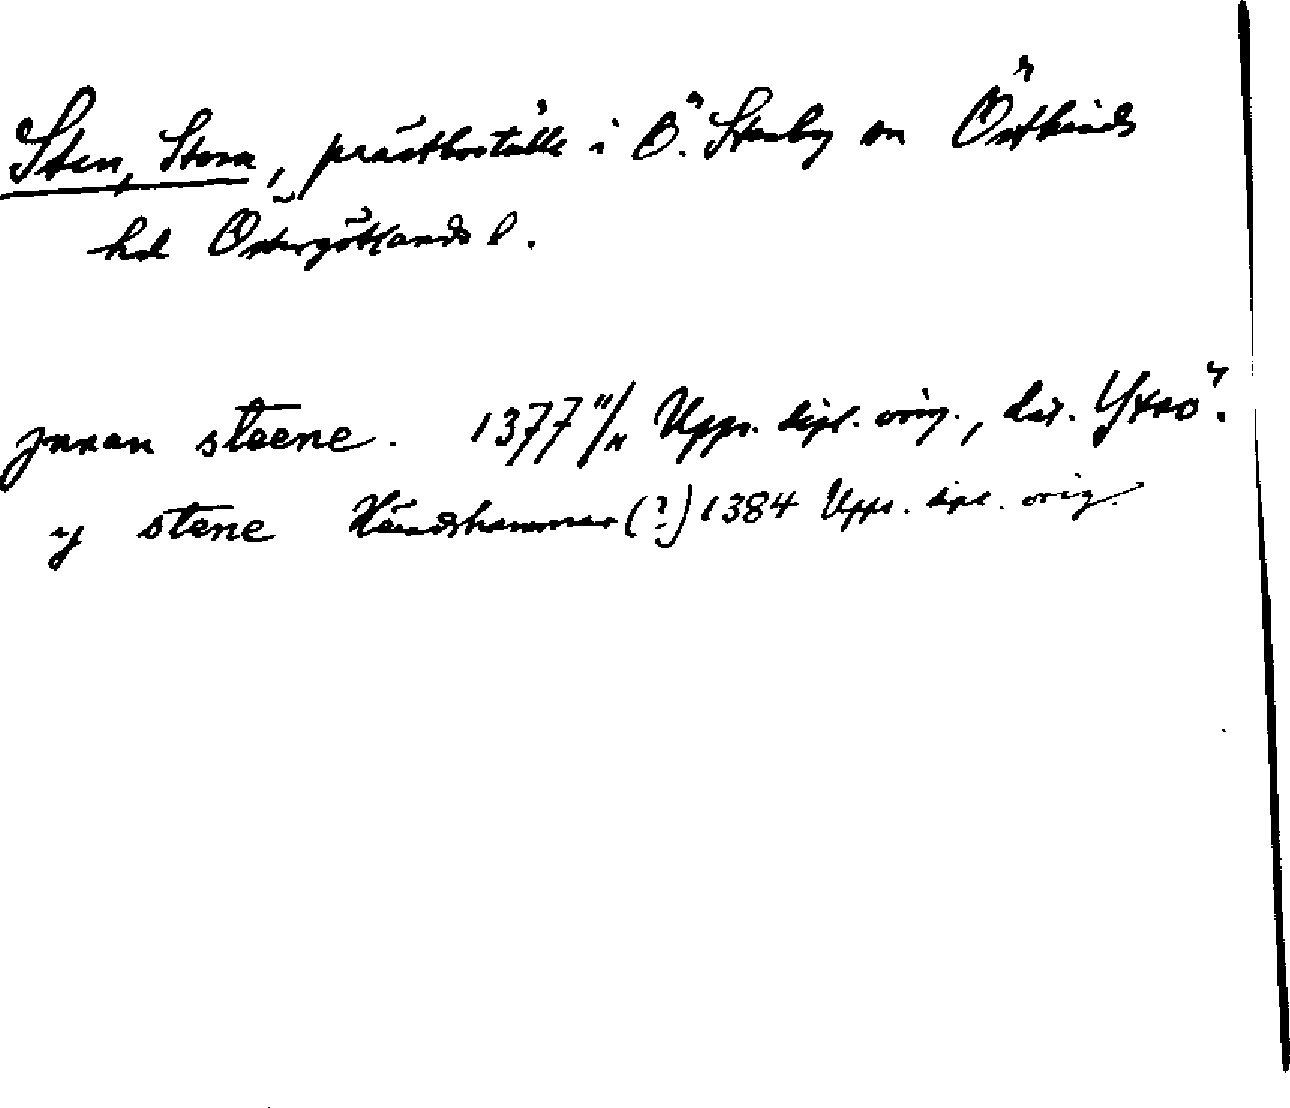 Sten, Stora, prästboställe i Ö. Stenby sn Östkinds
hd Östergötlands l.
jnnan steene. 1377 11/11 Upps. dipl. orig., dat. Yxnö.
y stene Händshammar (?) 1384 Upps. dipl. orig.